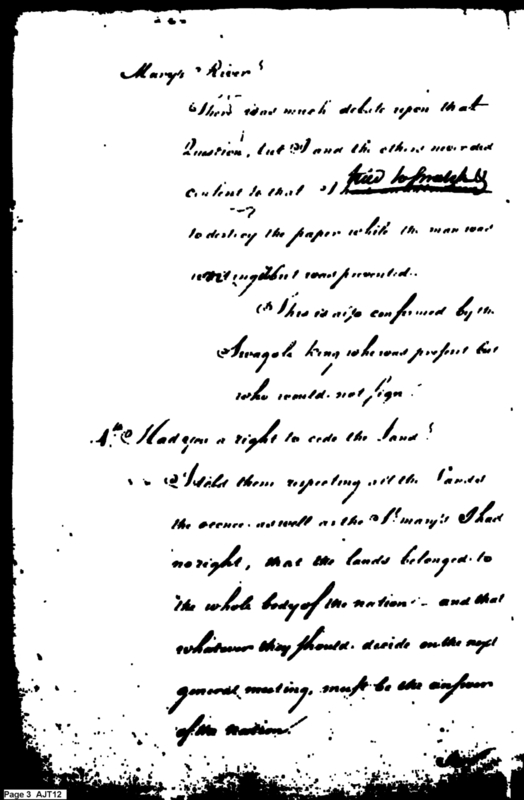 Mary's River?
There was much debate upon that
Question, but I and the others never did
consent to that I tried to
to destroy the paper while the man was
writing but was prevented.
This is also confirmed by the
king who was present but
who would not sign.
4th Had you a right to cede the Land?
I told them respecting all the Lands
the oconee as well as the St. mary's I had
no right, that the lands belonged to
the whole body of the nation - and that
whatever they should decide on the next
general meeting, must be the answer
of the nation.
Page 3 AJT12